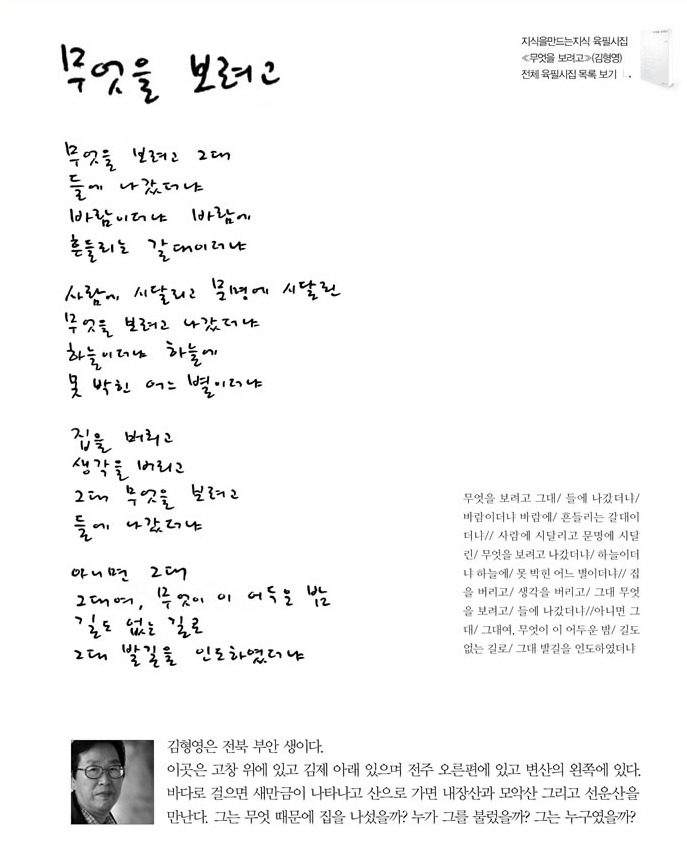 무엇을 보려고
지식을만드는지식 육필시집
≪무엇을 보려고≫(김형영)
전체 육필시집 목록 보기
무엇을 보려고 그대
들에 나갔더냐
바람이더냐 바람에
흔들리는 갈대이더냐
사람에 시달리고 문명에 시달린
무엇을 보려고 나갔더냐
하늘이더냐 하늘에
못 박힌 어느 별이더냐
집을 버리고
생각을 버리고
그대 무엇을 보려고
들에 나갔더냐
아니면 그대
그대여, 무엇이 이 어두운 밤
길도 없는 길로
그대 발길을 인도하였더냐
무엇을 보려고 그대/ 들에 나갔더냐/
바람이더냐 바람에/ 흔들리는 갈대이
더냐// 사람에 시달리고 문명에 시달
린/ 무엇을 보려고 나갔더냐/ 하늘이더
냐 하늘에/ 못 박힌 어느 별이더냐// 집
을 버리고/ 생각을 버리고/ 그대 무엇
을 보려고/ 들에 나갔더냐//아니면 그
대/ 그대여, 무엇이 이 어두운 밤/ 길도
없는 길로/ 그대 발길을 인도하였더냐
김형영은 전북 부안 생이다.
이곳은 고창 위에 있고 김제 아래 있으며 전주 오른편에 있고 변산의 왼쪽에 있다.
바다로 걸으면 새만금이 나타나고 산으로 가면 내장산과 모악산 그리고 선운산을
만난다. 그는 무엇 때문에 집을 나섰을까? 누가 그를 불렀을까? 그는 누구였을까?